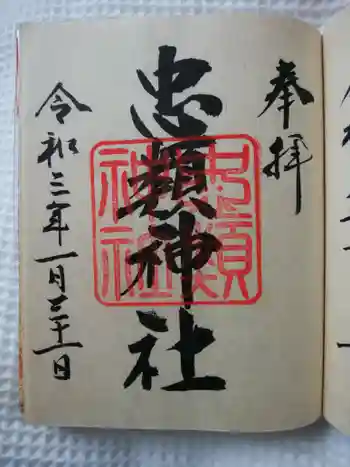 奉拝
忠頼神社
忠頼神社
令和三年一月三十一日